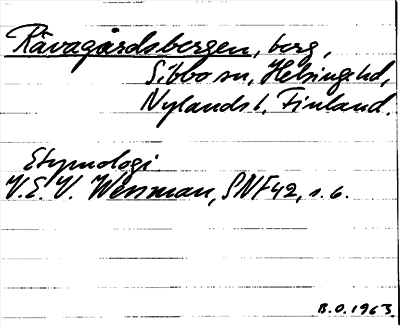 Rävagårdsbergen, berg,
Sibbo sn, Helsinge hd,
Nylands l, Finland.
Etymologi
V.E.V. Wessman, SNF 42, s. 6.
B.O. 1963